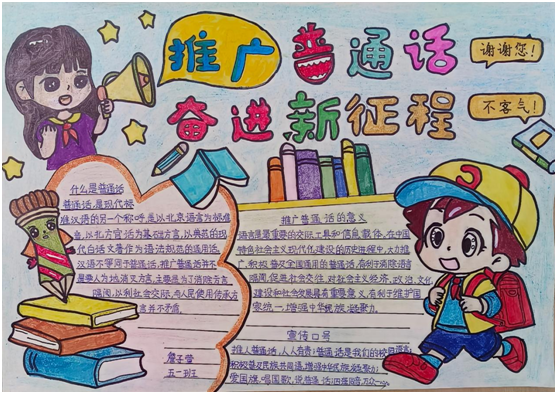 推广普通话
奋进新征程
谢谢您！
不客气！
什么是普通话
普通话，是现代标
准汉语的另一个称呼，是以北京语音为标准
音，以北方官话为基础方言，以典范的现
代白话文著作为语法规范的通用语。
汉语不等同于普通话，推广普通话并不
是要人为地消灭方言，主要是为了消除方言
隔阂，以利社会交际，与人民使用传承方
言并不矛盾。
五一班
推广普通话的意义
语言是重要的交际工具和信息载体，在中国
特色社会主义现代化建设的历史进程中，大力推
广、积极普及全国通用的普通话，有利于消除语言
隔阂，促进社会交往，对社会主义经济、政治、文化
建设和社会发展具有重要意义，有利于维护国
家统一，增强中华民族凝聚力。
宣传口号
推广普通话，人人有责；普通话是我们的校园语言；
积极普及民族共同语，增强中华民族凝聚力；
爱国旗，唱国歌，说普通话；